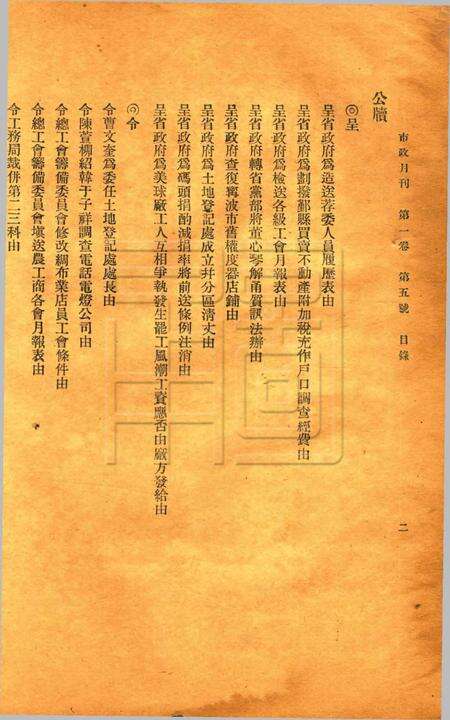 市政月刊 第一卷 第五號 目錄 二
公牘
◎呈
呈省政府爲造送荐委人員履歷表由
呈省政府爲劃撥鄞縣買賣不動產附加稅充作戶口調查經費由
呈省政府爲檢送各級工會月報表由
呈省政府轉省黨部將董心琴解甬質訊法辦由
呈省政府查復寗波市舊權度器店鋪由
呈省政府爲土地登記處成立幷分區清丈由
呈省政府爲碼頭捐酌減捐率將前送條例注消由
呈省政府爲美球廠工人互相爭執發生罷工風潮工資應否由廠方發給由
◎令
令曹文奎爲委任土地登記處處長由
令陳萱柳紹韓于子祥調查電話電燈公司由
令總工會籌備委員會修改綢布業店員工會條件由
令總工會籌備委員會塡送農工商各會月報表由
令工務局裁併第二三科由